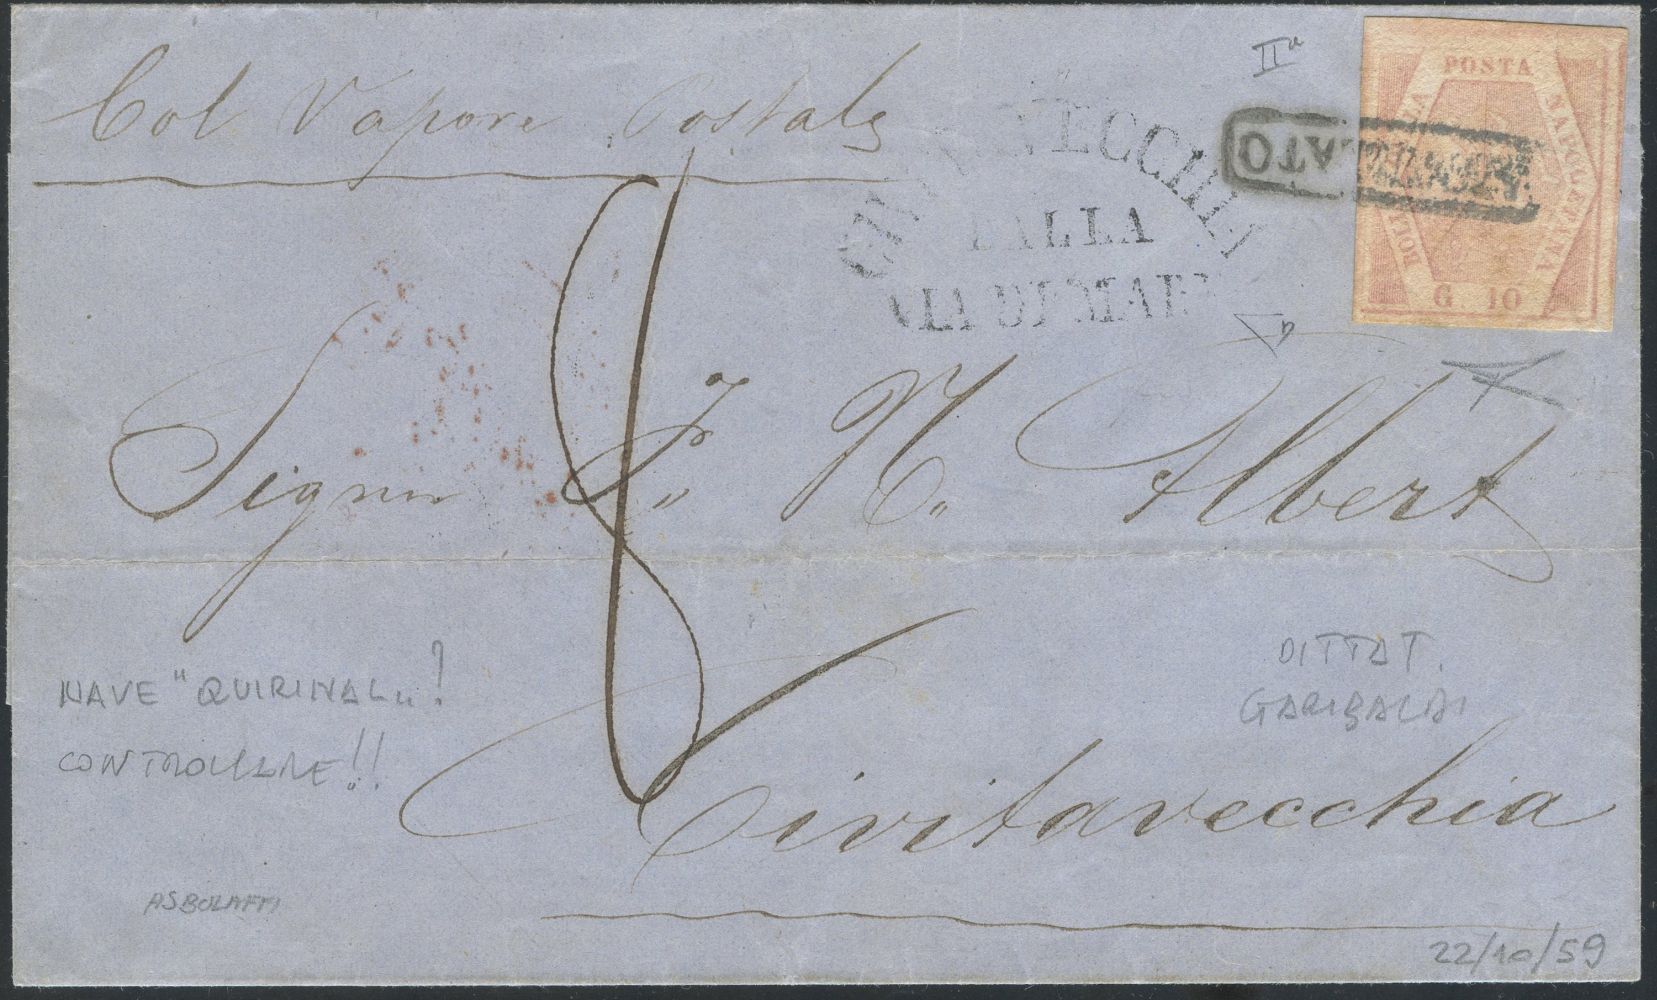 Col Vapore Postale
IIa
POSTA
NAPOLETANA
BOLLO DELLA
G. 10
ANNULLATO
CIVITAVECCHIA
DALLA
VIA DI MARE
8
Signor F. N. Albert
Civitavecchia
NAVE "QUIRINAL"!
CONTROLLARE!!
DITTAT.
GARIBALDI
ASBOLAFFI
22/10/59